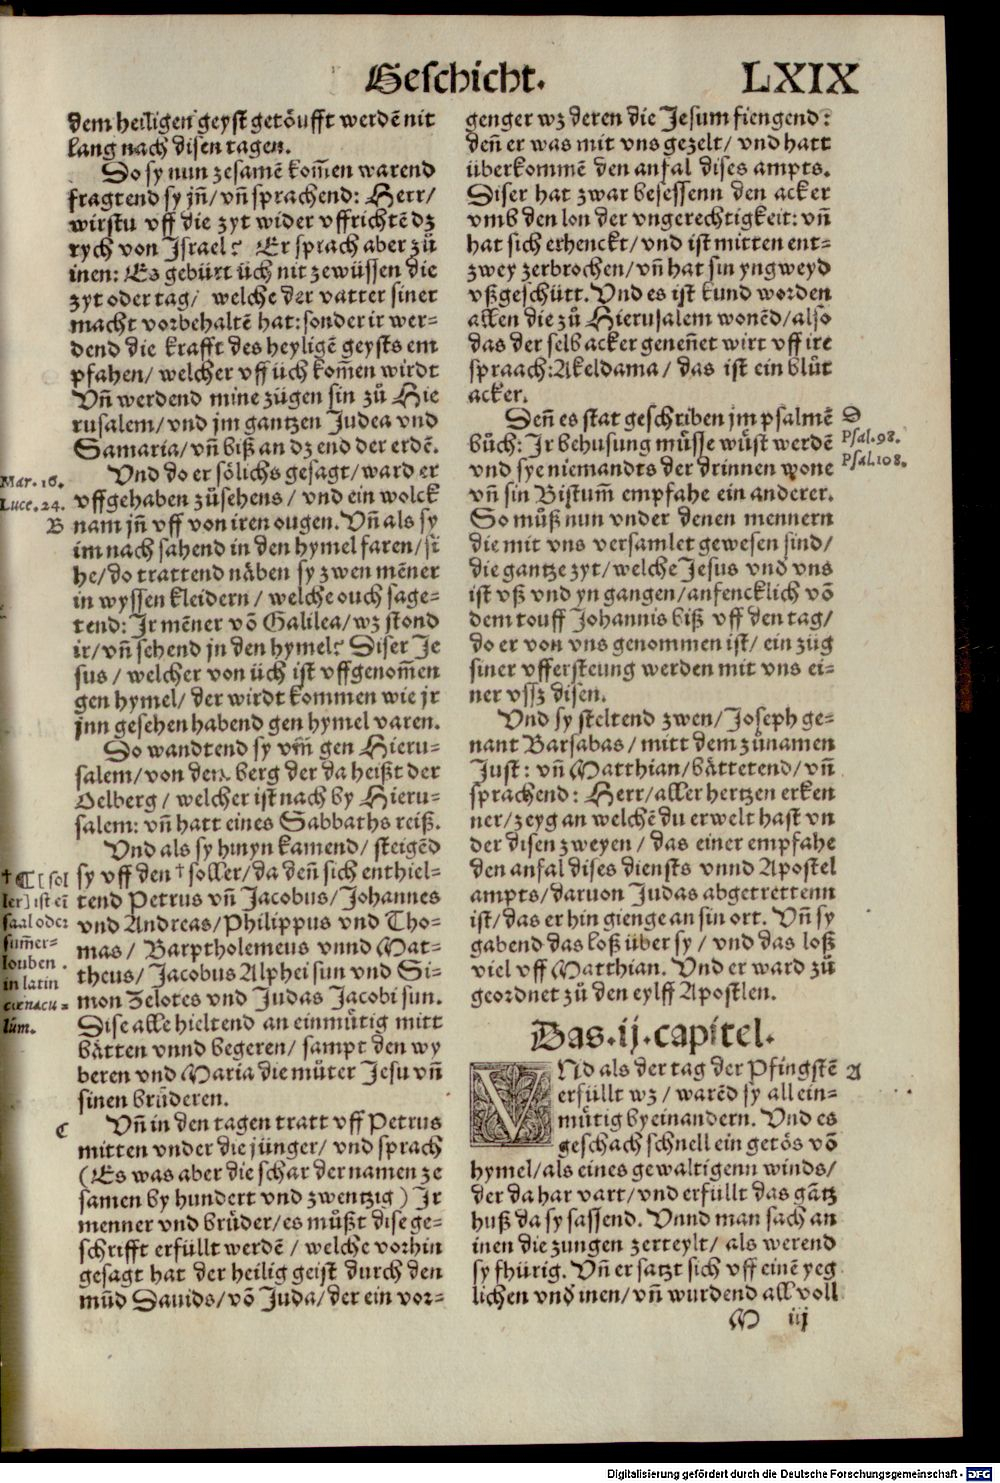 Geschicht. LXIX
dem heiligen geyst getöufft werdē nit
lang nach disen tagen.
So sy nun zesamē kom̄en warend
fragtend sy jn̄/ vn̄ sprachend: Herr/
wirstu vff die zyt wider vffrichtē dz
rych von Israel? Er sprach aber zů
inen: Es gebürt üch nit zewüssen die
zyt oder tag/ welche der vatter siner
macht vorbehaltē hat: sonder ir wer-
dend die krafft des heyligē geysts em
pfahen/ welcher vff üch kom̄en wirdt
Vn̄ werdend mine zügen sin zů Hie
rusalem/ vnd jm gantzen Judea vnd
Samaria/ vn̄ biß an dz end der erdē.
Mar. 16.
Luce. 24.
B
Vnd do er sölichs gesagt/ ward er
vffgehaben zůsehens/ vnd ein wolck
nam jn̄ vff von iren ougen. Vn̄ als sy
im nach sahend in den hymel faren/ si
he/ do trattend näben sy zwen mēner
in wyssen kleidern/ welche ouch sage-
tend: Ir mēner vō Galilea/ wz stond
ir/ vn̄ sehend jn den hymel? Diser Je
sus/ welcher von üch ist vffgenom̄en
gen hymel/ der wirdt kommen wie jr
jnn gesehen habend gen hymel varen.
Do wandtend sy vm̄ gen Hieru-
salem/ von dem berg der da heißt der
Oelberg/ welcher ist nach by Hieru-
salem: vn̄ hatt eines Sabbaths reiß.
Vnd als sy hinyn kamend/ steigēd
sy vff den † soller/ da den̄ sich enthiel-
tend Petrus vn̄ Jacobus/ Johannes
vnd Andreas/ Philippus vnd Tho-
mas/ Barptholemeus vnnd Mat-
theus/ Jacobus Alphei sun vnd Si-
mon Zelotes vnd Judas Jacobi sun.
Dise alle hieltend an einmütig mitt
bätten vnnd begeren/ sampt den wy
beren vnd Maria die můter Jesu vn̄
sinen brüderen.
† ¶ [sol
ler] ist eī
saal oder
sum̄er-
louben
in latin
cœnacu-
lūm.
C
Vn̄ in den tagen tratt vff Petrus
mitten vnder die jünger/ vnd sprach
(Es was aber die schar der namen ze
samen by hundert vnd zwentzig) Ir
menner vnd brüder/ es můßt dise ge-
schrifft erfüllt werdē/ welche vorhin
gesagt hat der heilig geist durch den
mūd Dauids/ vō Juda/ der ein vor-
genger wz deren die Jesum fiengend:
den̄ er was mit vns gezelt/ vnd hatt
überkommē den anfal dises ampts.
Diser hat zwar besessenn den acker
vmb den lon der vngerechtigkeit: vn̄
hat sich erhenckt/ vnd ist mitten ent-
zwey zerbrochen/ vn̄ hat sin yngweyd
vßgeschütt. Vnd es ist kund worden
allen die zů Hierusalem wonēd/ also
das der selb acker genen̄et wirt vff ire
spraach: Akeldama/ das ist ein blůt
acker.
D
Psal. 98.
Psal. 108.
Den̄ es stat geschriben jm psalmē
bůch: Ir behusung müsse wüst werdē
vnd sye niemandts der drinnen wone
vn̄ sin Bistum̄ empfahe ein anderer.
So můß nun vnder denen mennern
die mit vns versamlet gewesen sind/
die gantze zyt/ welche Jesus vnd vns
ist vß vnd yn gangen/ anfencklich vō
dem touff Johannis biß vff den tag/
do er von vns genommen ist/ ein züg
siner vffersteung werden mit vns ei-
ner vssz disen.
Vnd sy steltend zwen/ Joseph ge-
nant Barsabas/ mitt dem zůnamen
Just: vn̄ Matthian/ bättetend/ vn̄
sprachend: Herr/ aller hertzen erken
ner/ zeyg an welchē du erwelt hast vn
der disen zweyen/ das einer empfahe
den anfal dises diensts vnnd Apostel
ampts/ daruon Judas abgetrettenn
ist/ das er hin gienge an sin ort. Vn̄ sy
gabend das loß über sy/ vnd das loß
viel vff Matthian. Vnd er ward zů
geordnet zů den eylff Apostlen.
Das. ij. capitel.
A
VNd als der tag der Pfingstē
erfüllt wz/ warēd sy all ein-
mütig byeinandern. Vnd es
geschach schnell ein getös vō
hymel/ als eines gewaltigenn winds/
der da har vart/ vnd erfüllt das gātz
huß da sy sassend. Vnnd man sach an
inen die zungen zerteylt/ als werend
sy fhürig. Vn̄ er satzt sich vff einē yeg
lichen vnd inen/ vn̄ wurdend all voll
M iij
Digitalisierung gefördert durch die Deutsche Forschungsgemeinschaft - DFG